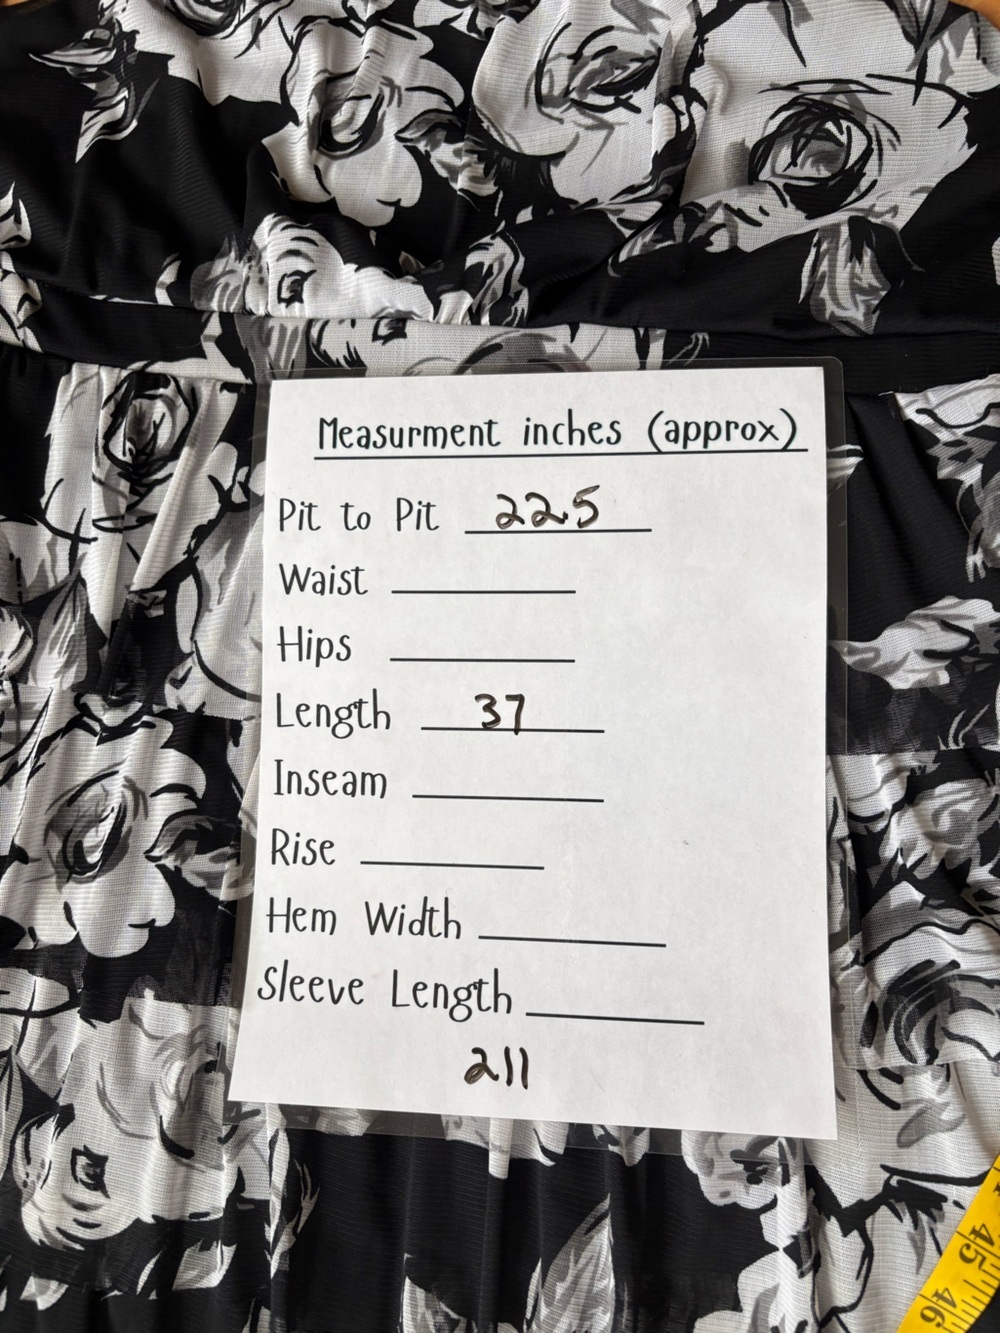 Measurment inches (approx)
Pit to Pit 22.5
Waist
Hips
Length 37
Inseam
Rise
Hem Width
Sleeve Length
211
45
46